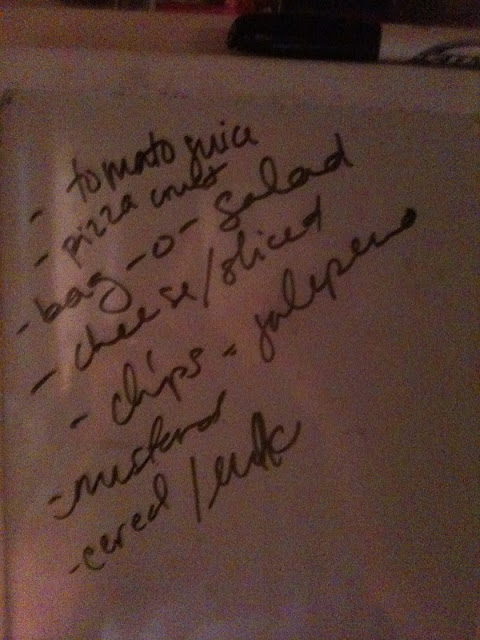 - tomato juice
- pizza crust
- bag-o-salad
- cheese/sliced
- chips - jalepeno
- mustard
- cereal/milk